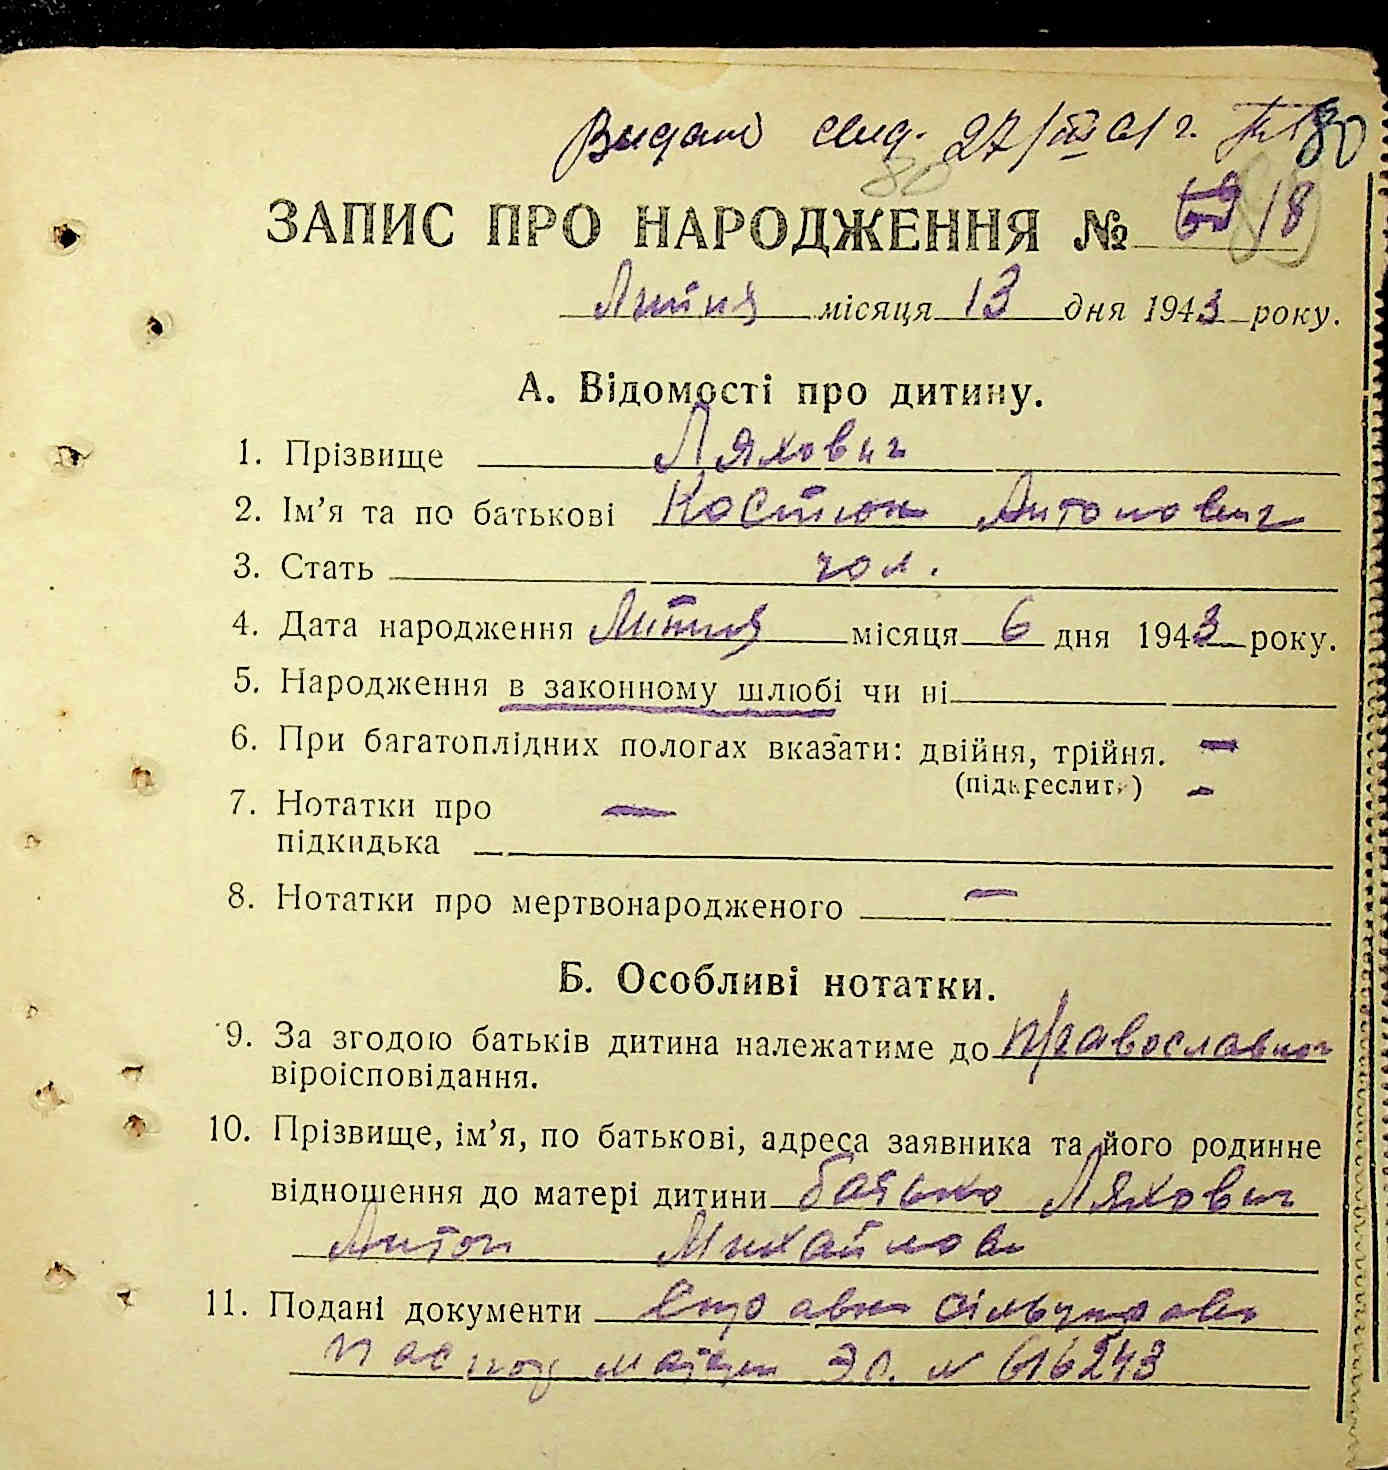 Видані свид. 27/III 61 г. 80
80
ЗАПИС ПРО НАРОДЖЕННЯ № 18
Липня місяця 13 дня 1943 року.
А. Відомості про дитину.
1. Прізвище Ляхович
2. Ім’я та по батькові Костюк Антонович
3. Стать чол.
4. Дата народження Липня місяця 6 дня 1943 року.
5. Народження в законному шлюбі чи ні
6. При багатоплідних пологах вказати: двійня, трійня. —
(підкреслити) -
7. Нотатки про —
підкидька
8. Нотатки про мертвонародженого —
Б. Особливі нотатки.
9. За згодою батьків дитина належатиме до православного
віроісповідання.
10. Прізвище, ім’я, по батькові, адреса заявника та його родинне
відношення до матері дитини батько Ляхович
Антон Михайлов
11. Подані документи Справка сільуправи
паспорт матери ЭО. № 616243